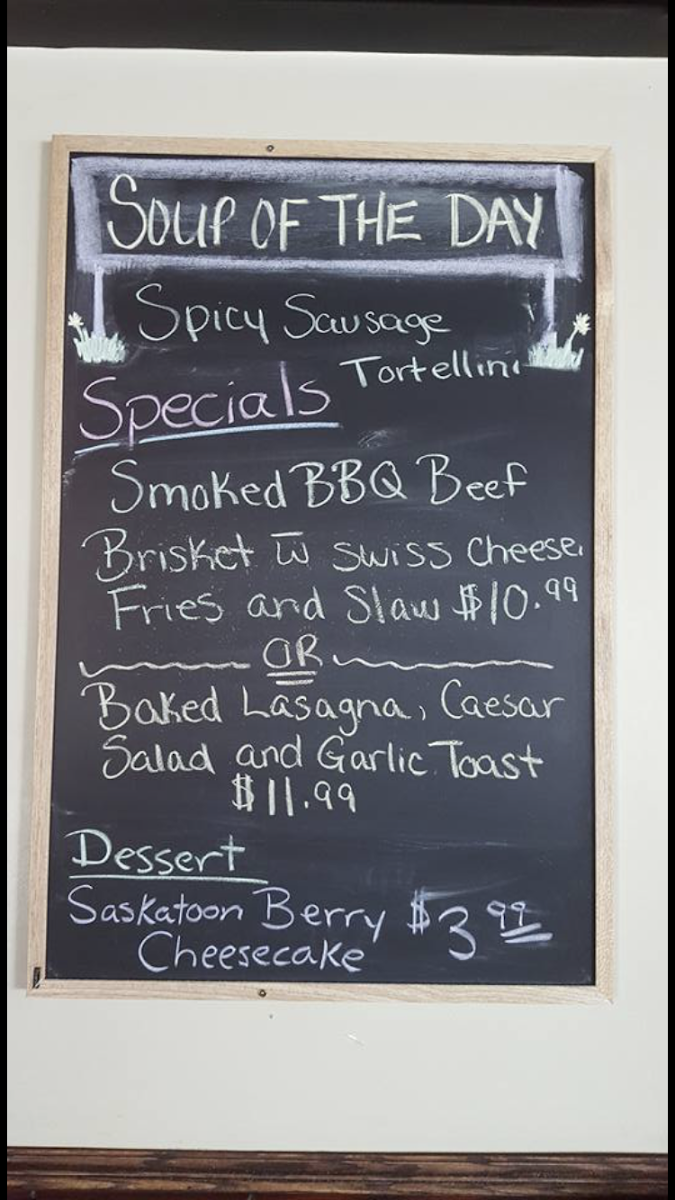 SOUP OF THE DAY
Spicy Sausage
Tortellini
Specials
Smoked BBQ Beef
Brisket w̅ swiss cheese,
Fries and Slaw $10.99
OR
Baked Lasagna, Caesar
Salad and Garlic Toast
$11.99
Dessert
Saskatoon Berry $3.99
Cheesecake